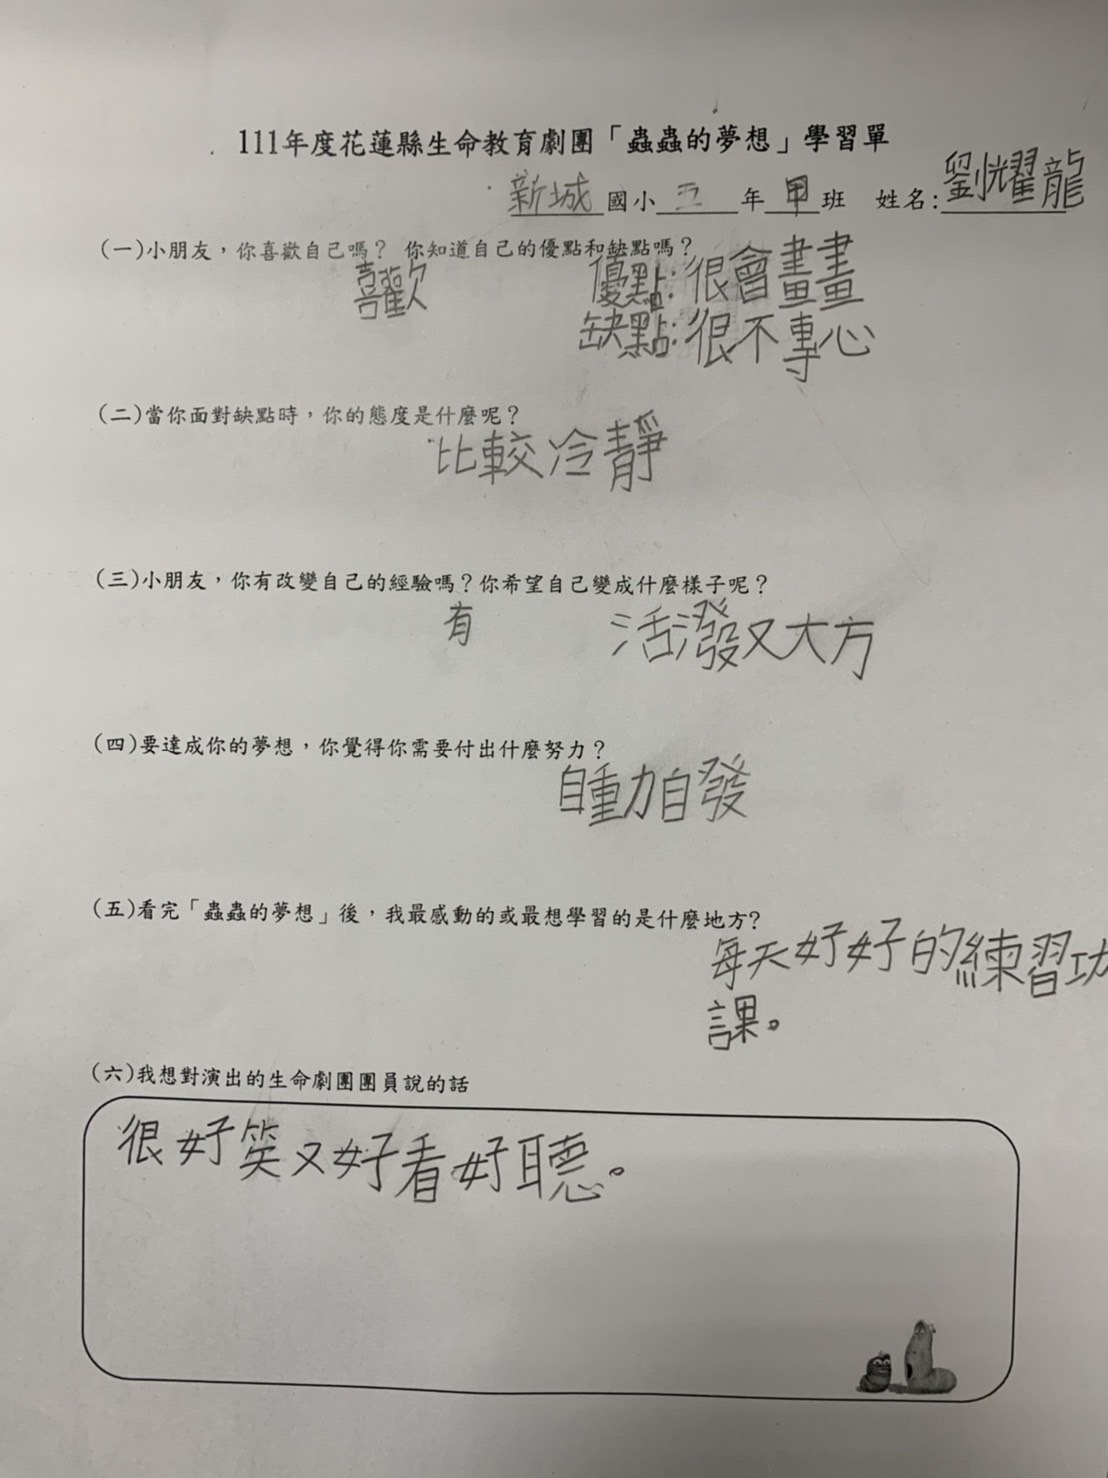 111年度花蓮縣生命教育劇團「蟲蟲的夢想」學習單
新城國小三年甲班 姓名:劉耀龍
(一)小朋友，你喜歡自己嗎？ 你知道自己的優點和缺點嗎？
喜歡 優點:很會畫畫
缺點:很不專心
(二)當你面對缺點時，你的態度是什麼呢？
比較冷靜
(三)小朋友，你有改變自己的經驗嗎？你希望自己變成什麼樣子呢？
有 活潑又大方
(四)要達成你的夢想，你覺得你需要付出什麼努力？
自動自發
(五)看完「蟲蟲的夢想」後，我最感動的或最想學習的是什麼地方?
每天好好的練習功
課。
(六)我想對演出的生命劇團團員說的話
很好笑又好看好聽。